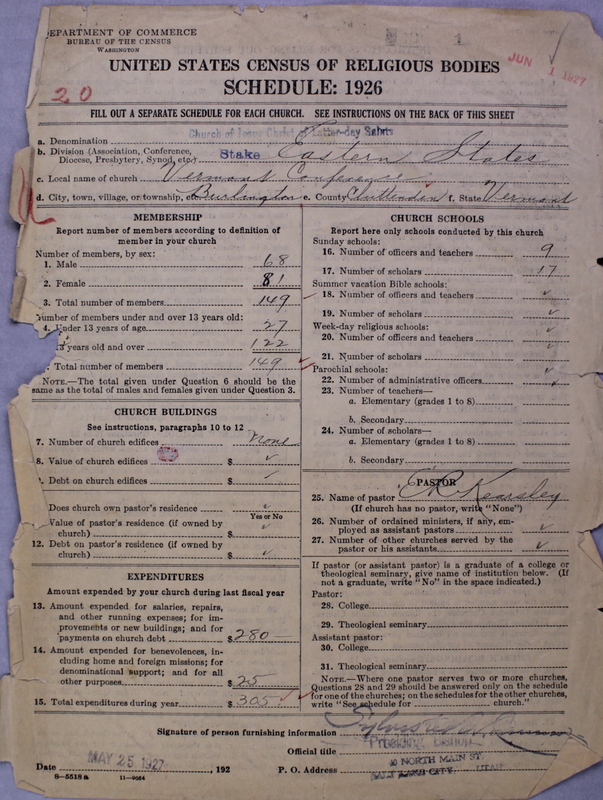 DEPARTMENT OF COMMERCE
BUREAU OF THE CENSUS
WASHINGTON
JUN 1 1927
UNITED STATES CENSUS OF RELIGIOUS BODIES
SCHEDULE: 1926
20
FILL OUT A SEPARATE SCHEDULE FOR EACH CHURCH. SEE INSTRUCTIONS ON THE BACK OF THIS SHEET
a. Denomination Church of Jesus Christ of Latter-day Saints
b. Division (Association, Conference, Diocese, Presbytery, Synod, etc.) Stake Eastern States
c. Local name of church Vermont Conference
d. City, town, village, or township, etc. Burlington e. County Chittenden f. State Vermont
MEMBERSHIP
Report number of members according to definition of
member in your church
Number of members, by sex:
1. Male 68
2. Female 81
3. Total number of members 149
Number of members under and over 13 years old:
4. Under 13 years of age 27
13 years old and over 122
Total number of members 149
NOTE.—The total given under Question 6 should be
same as the total of males and females given under Question 3.
CHURCH BUILDINGS
See instructions, paragraphs 10 to 12
7. Number of church edifices None
8. Value of church edifices $ ✓
Debt on church edifices $ ✓
Does church own pastor's residence ✓
Yes or No
Value of pastor's residence (if owned by
church) $ ✓
12. Debt on pastor's residence (if owned by
church) $ ✓
EXPENDITURES
Amount expended by your church during last fiscal year
13. Amount expended for salaries, repairs,
and other running expenses; for im-
provements or new buildings; and for
payments on church debt $ 280
14. Amount expended for benevolences, in-
cluding home and foreign missions; for
denominational support; and for all
other purposes $ 25
15. Total expenditures during year $ 305
CHURCH SCHOOLS
Report here only schools conducted by this church
Sunday schools:
16. Number of officers and teachers 9
17. Number of scholars 17
Summer vacation Bible schools:
18. Number of officers and teachers ✓
19. Number of scholars ✓
Week-day religious schools:
20. Number of officers and teachers ✓
21. Number of scholars ✓
Parochial schools:
22. Number of administrative officers ✓
23. Number of teachers—
a. Elementary (grades 1 to 8)
b. Secondary
24. Number of scholars—
a. Elementary (grades 1 to 8)
b. Secondary
PASTOR
25. Name of pastor Kearsley
(If church has no pastor, write "None")
26. Number of ordained ministers, if any, em-
ployed as assistant pastors ✓
27. Number of other churches served by the
pastor or his assistants ✓
If pastor (or assistant pastor) is a graduate of a college or
theological seminary, give name of institution below. (If
not a graduate, write "No" in the space indicated.)
Pastor:
28. College
29. Theological seminary
Assistant pastor:
30. College
31. Theological seminary
NOTE.—Where one pastor serves two or more churches,
Questions 28 and 29 should be answered only on the schedule
for one of the churches; on the schedules for the other churches,
write "See schedule for church."
Signature of person furnishing information Sylvester Q. Cannon
Official title Presiding Bishop
Date MAY 25 1927, 192 P. O. Address 40 NORTH MAIN ST. SALT LAKE CITY, UTAH
8—5518a 11—9064